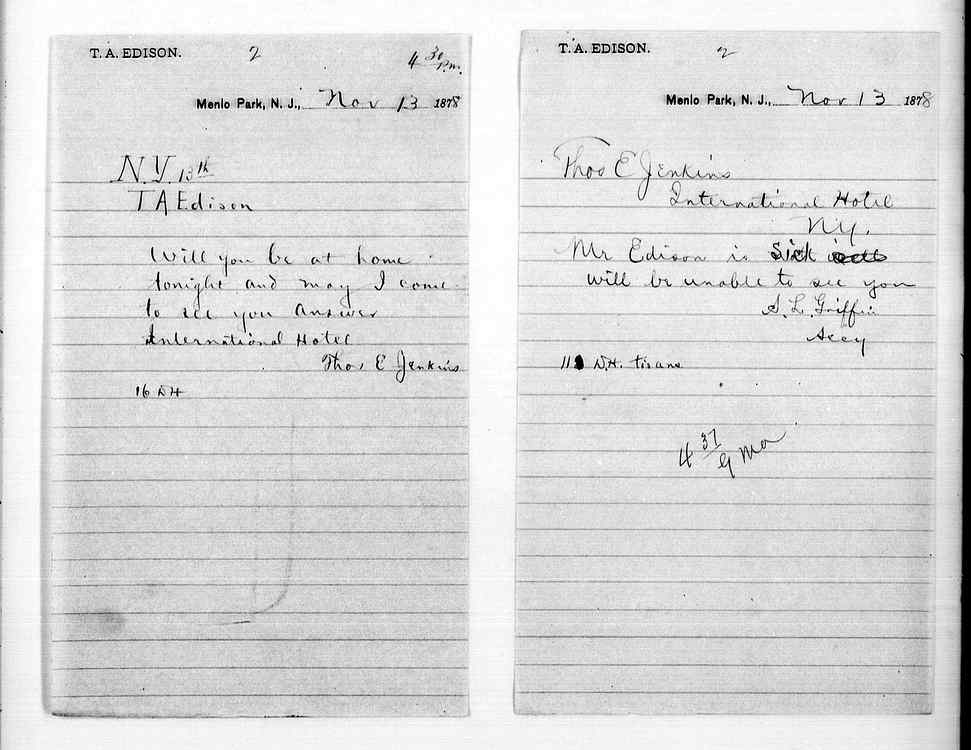 T. A. EDISON. 2 4 30 P.m.
Menlo Park, N. J., Nov 13 1878
N.Y. 13th
T A Edison
Will you be at home
tonight and may I come
to see you Answer
International Hotel
Thos E Jenkins
16 DH
T. A. EDISON. 2
Menlo Park, N. J., Nov 13 1878
Thos E Jenkins
International Hotel
NY.
Mr Edison is Sick
will be unable to see you
S. L. Griffin
Secy
11 D.H.
4 37